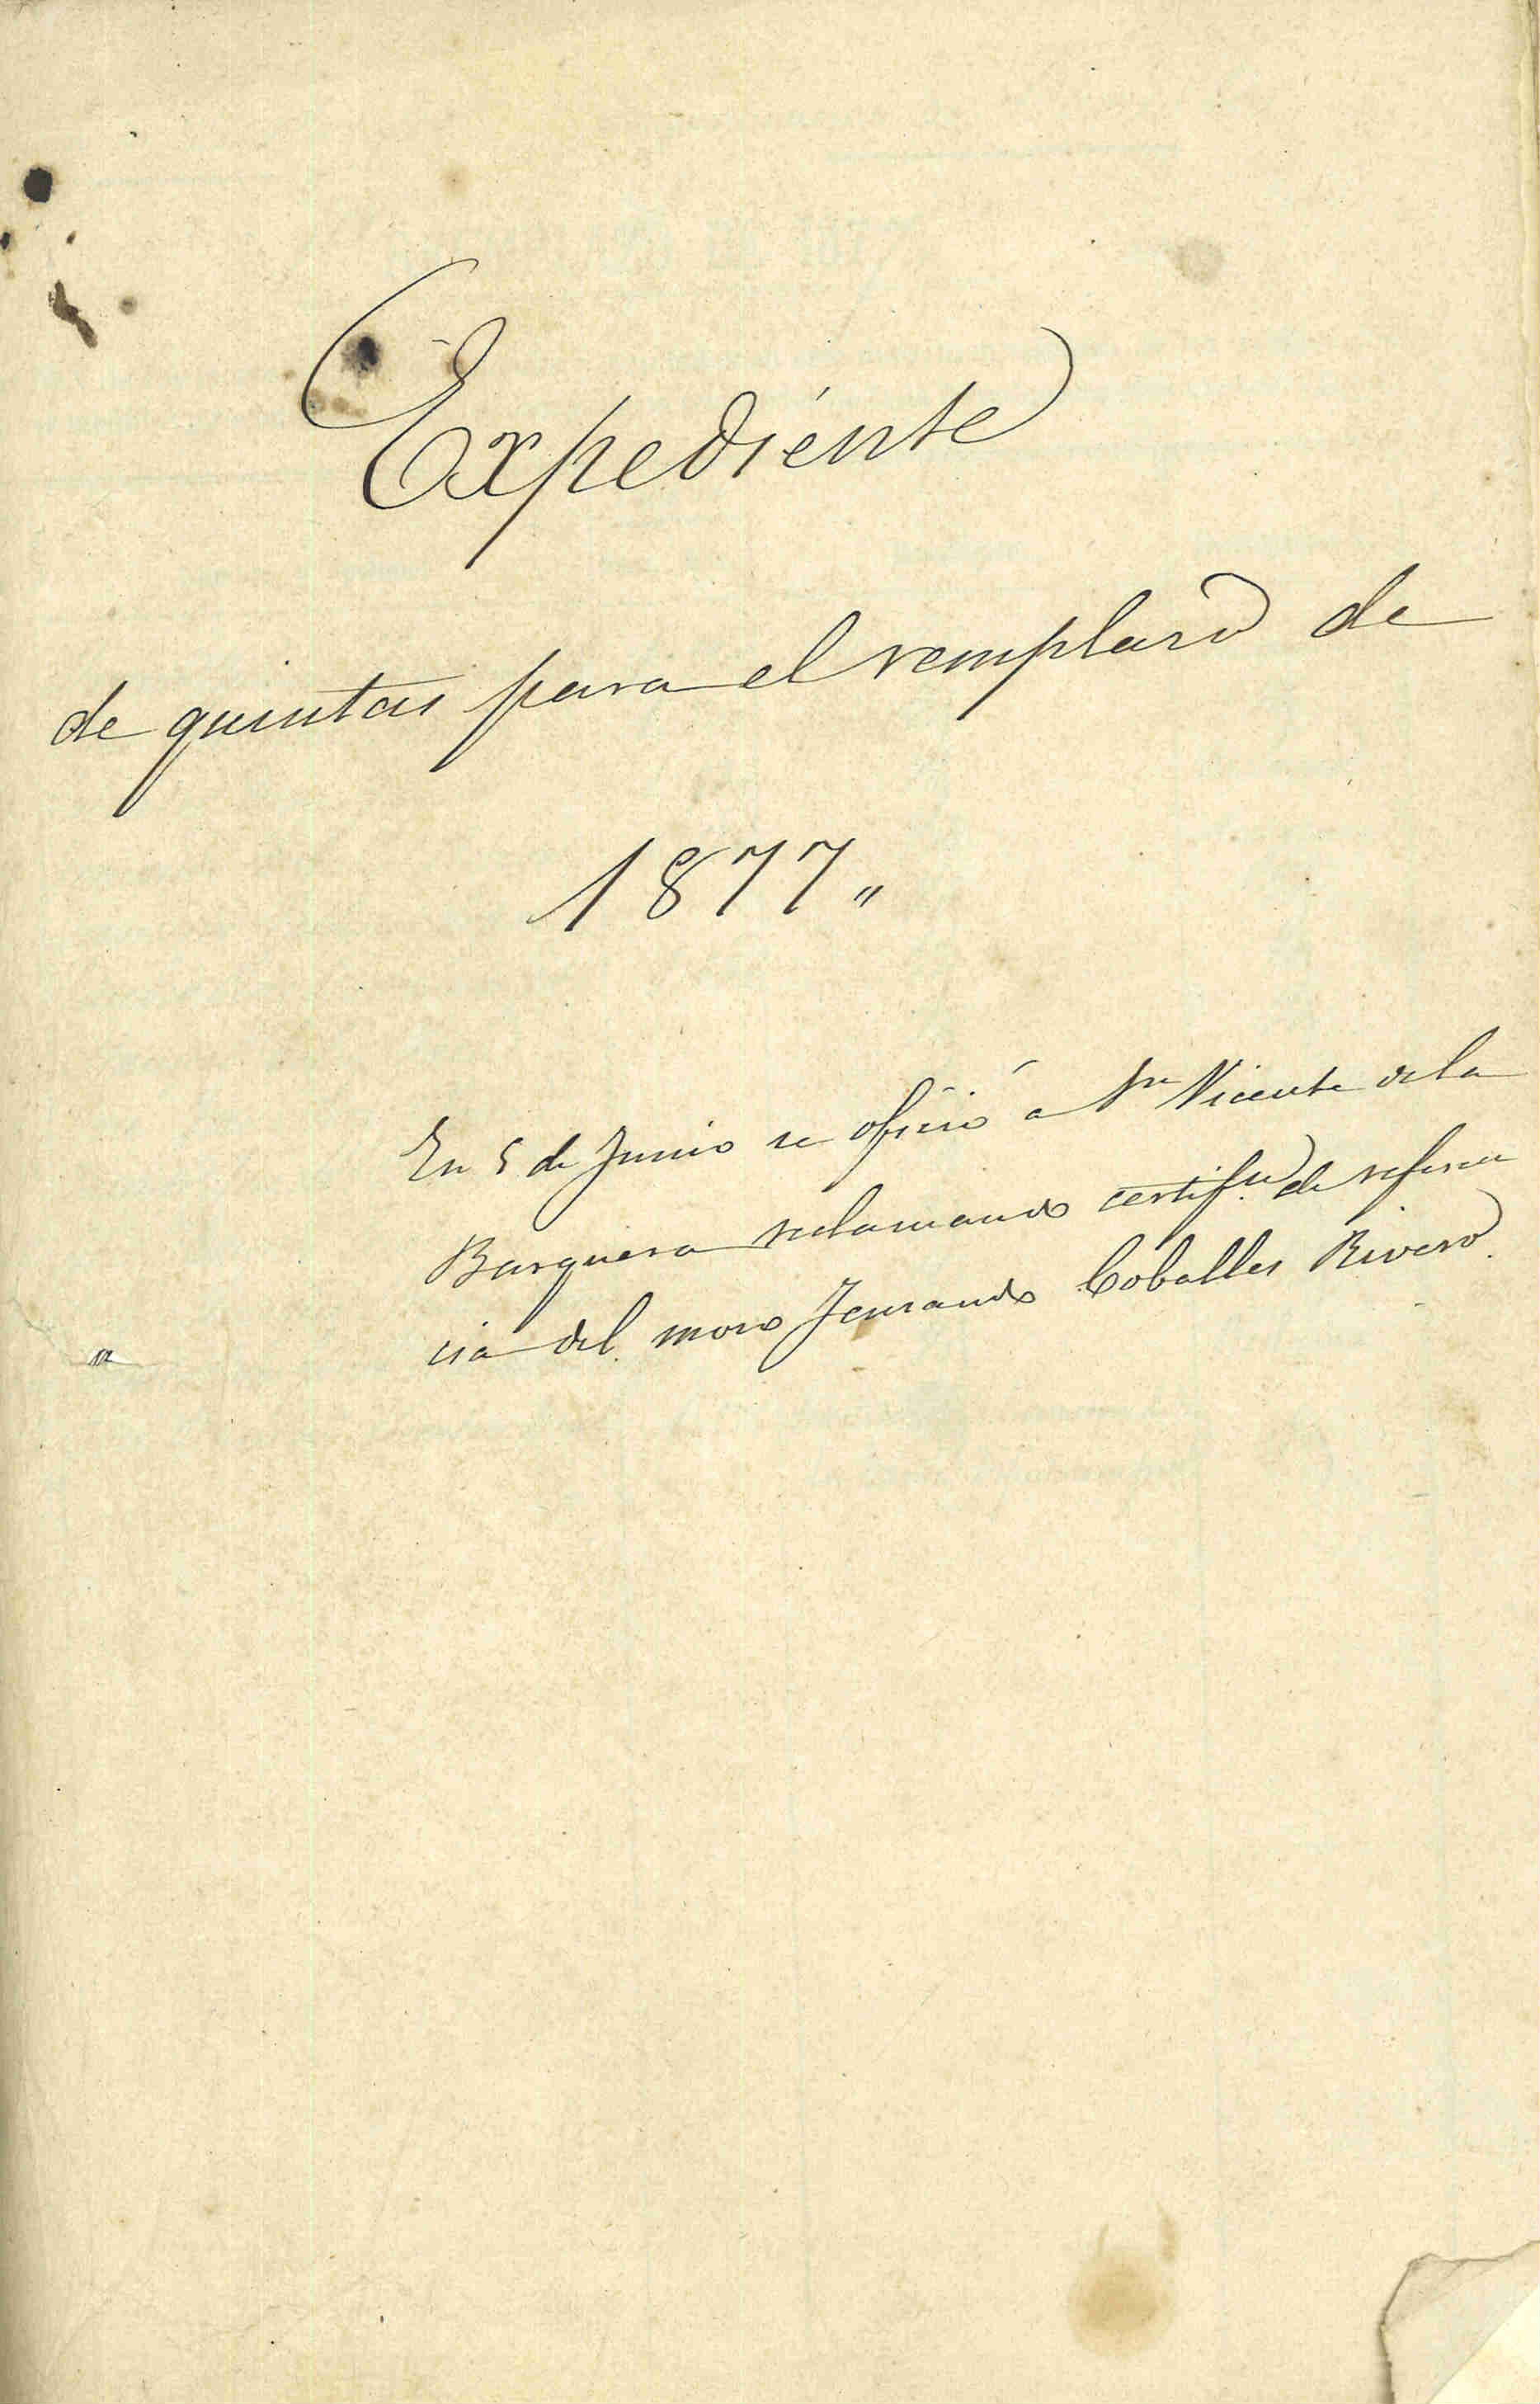 Expediente
de quintas para el remplaso de
1877„
En 5 de Junio se ofició a Sn Vicente dela
Barquera reclamando certifn. de referen
cia del moso Fernando Coballes Rivero.